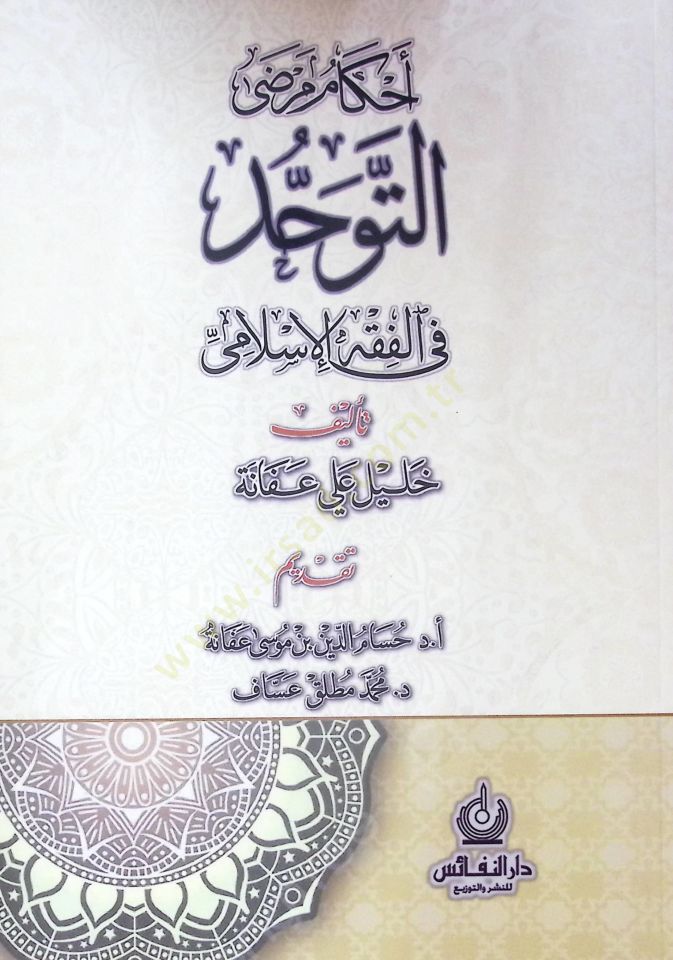 أحكام مرضى
التَّوَحُّد
في الفقه الإسلامي
تأليف
خليل علي عفانة
تقديم
أ.د حسام الدين بن موسى عفانة
د. محمد مطلق عساف
دار النفائس
للنشر والتوزيع
www.irsad.com.tr